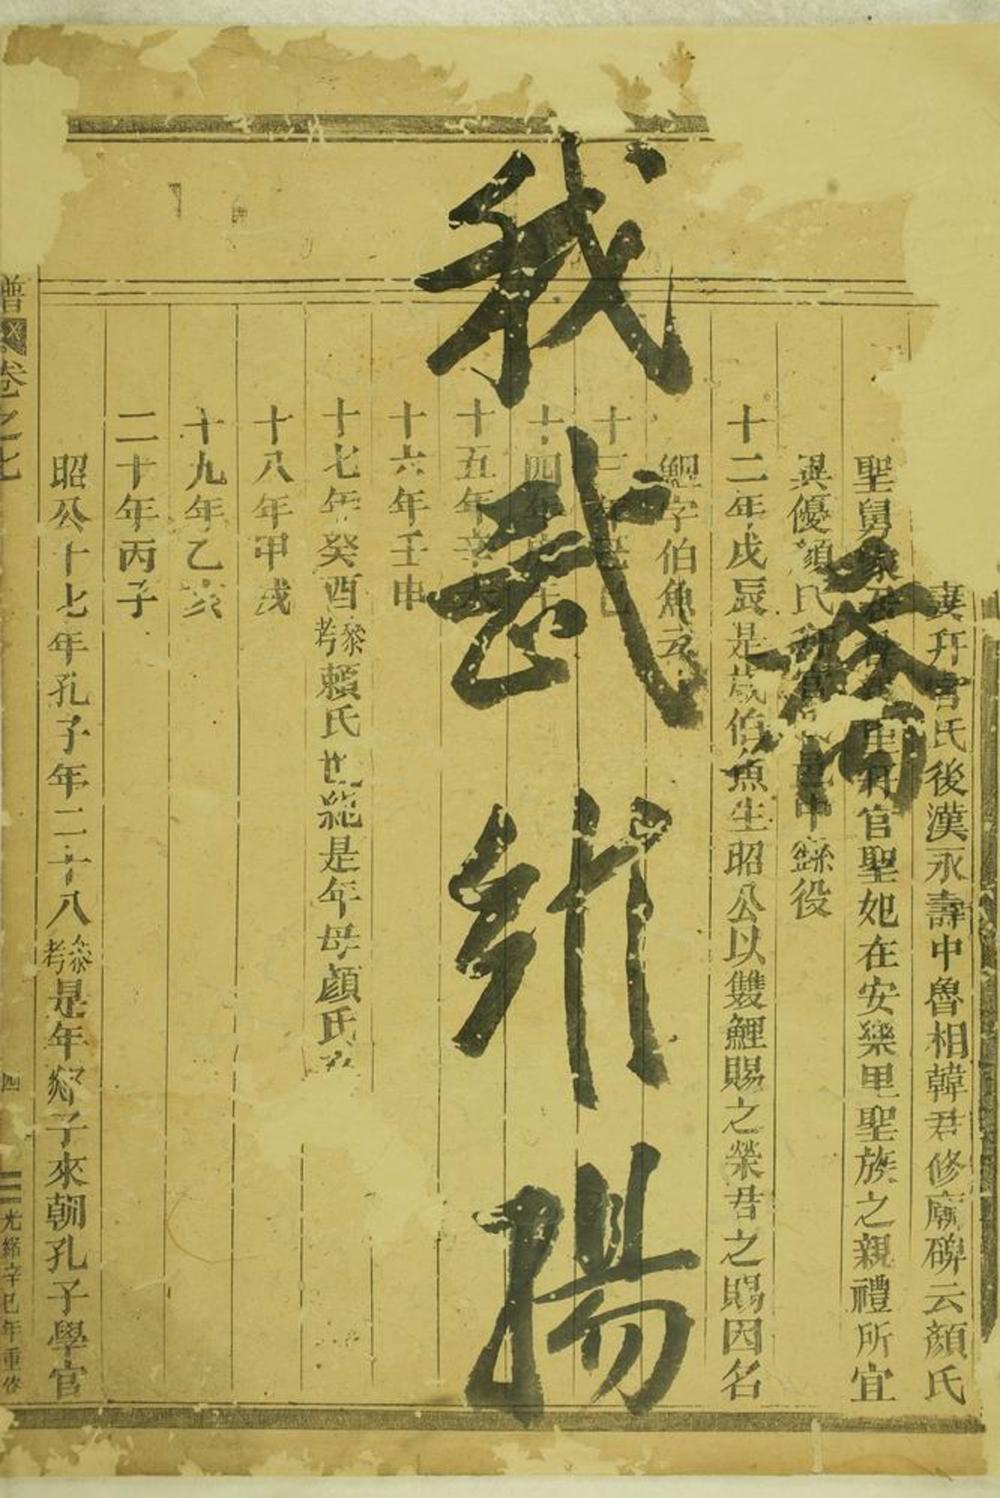 妻幵官氏後漢永壽中魯相韓君修廟碑云顏氏
聖舅 幵官聖妃在安樂里聖族之親禮所宜
異優顏氏 官 中繇役
十二年戊辰是歲伯魚生昭公以雙鯉賜之榮君之賜因名
鯉字伯魚云
十三年己巳
十四年 午
十五年辛未
十六年壬申
十七年癸酉參考賴氏世紀是年母顏氏
十八年甲戌
十九年乙亥
二十年丙子
昭公十七年孔子年二十八參考是年郯子來朝孔子學官
譜 卷之七
四
光緒辛巳年重修
我武維揚